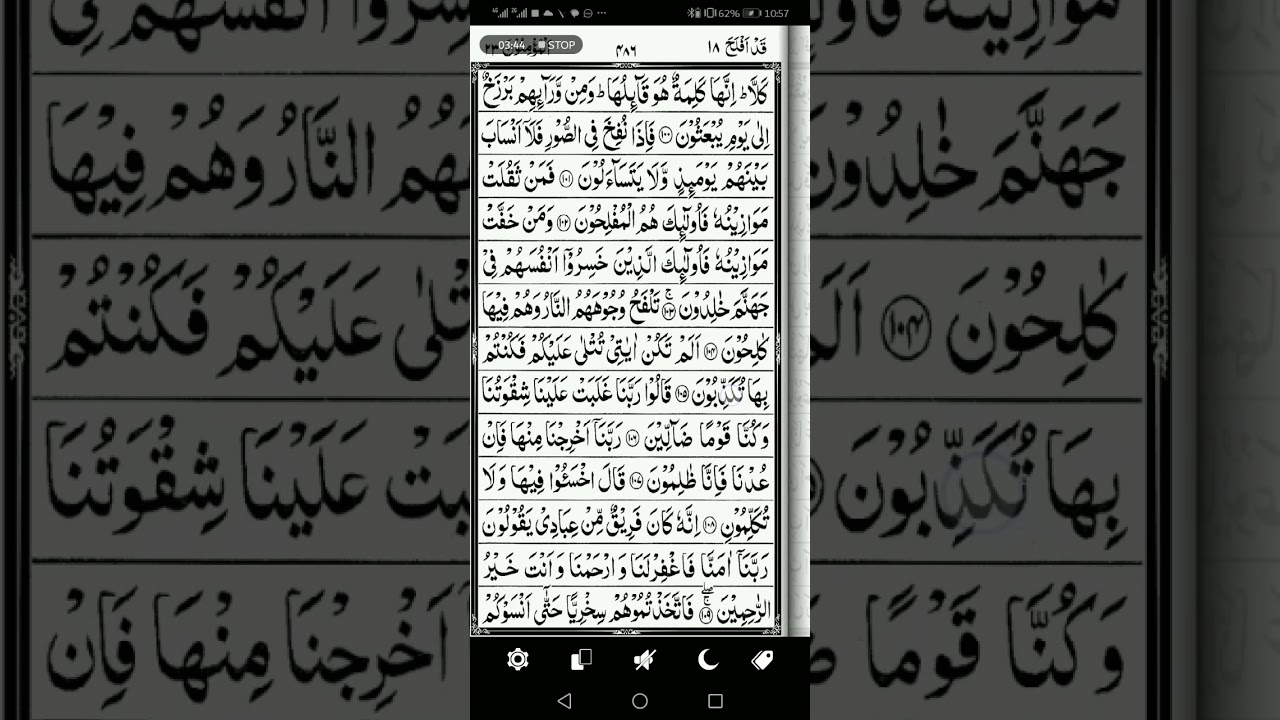 62% 10:57
03:44 STOP
قَدْ اَفْلَحَ ١٨ ۴۸۶ اَلْمُؤْمِنُوْن ٢٣
كَلَّا ؕ اِنَّهَا كَلِمَةٌ هُوَ قَآئِلُهَا ؕ وَمِنْ وَّرَآئِهِمْ بَرْزَخٌ
اِلٰى يَوْمِ يُبْعَثُوْنَ ١٠٠ فَاِذَا نُفِخَ فِى الصُّوْرِ فَلَاۤ اَنْسَابَ
بَيْنَهُمْ يَوْمَئِذٍ وَّلَا يَتَسَآءَلُوْنَ ١٠١ فَمَنْ ثَقُلَتْ
مَوَازِيْنُهٗ فَاُولٰٓئِكَ هُمُ الْمُفْلِحُوْنَ ١٠٢ وَمَنْ خَفَّتْ
مَوَازِيْنُهٗ فَاُولٰٓئِكَ الَّذِيْنَ خَسِرُوْۤا اَنْفُسَهُمْ فِىْ
جَهَنَّمَ خٰلِدُوْنَ ۚ ١٠٣ تَلْفَحُ وُجُوْهَهُمُ النَّارُ وَهُمْ فِيْهَا
كٰلِحُوْنَ ١٠٤ اَلَمْ تَكُنْ اٰيٰتِىْ تُتْلٰى عَلَيْكُمْ فَكُنْتُمْ
بِهَا تُكَذِّبُوْنَ ١٠٥ قَالُوْا رَبَّنَا غَلَبَتْ عَلَيْنَا شِقْوَتُنَا
وَكُنَّا قَوْمًا ضَآلِّيْنَ ١٠٦ رَبَّنَاۤ اَخْرِجْنَا مِنْهَا فَاِنْ
عُدْنَا فَاِنَّا ظٰلِمُوْنَ ١٠٧ قَالَ اخْسَـُٔوْا فِيْهَا وَلَا
تُكَلِّمُوْنِ ١٠٨ اِنَّهٗ كَانَ فَرِيْقٌ مِّنْ عِبَادِىْ يَقُوْلُوْنَ
رَبَّنَاۤ اٰمَنَّا فَاغْفِرْ لَنَا وَارْحَمْنَا وَاَنْتَ خَيْرُ
الرّٰحِمِيْنَ ۚۖ ١٠٩ فَاتَّخَذْتُمُوْهُمْ سِخْرِيًّا حَتّٰٓى اَنْسَوْكُمْ